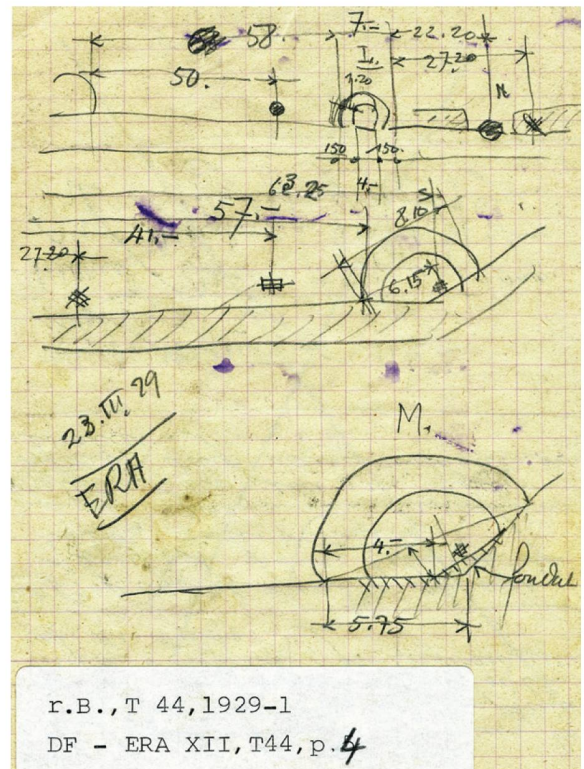 58.- 7.- 22.20
50. I. 27.20
1.20 M
150 150
63.25 4.-
57.- S
41.- 8.10
27.20 6.15
23.III.29
ERA
M.
4.-
5.75
r.B.,T 44,1929-1
DF - ERA XII,T44,p.4